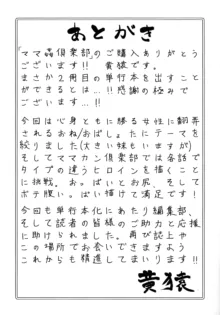 あとがき
『ママ姦倶楽部』のご購入ありがとう
ございます!! 黄猿です。
まさか2冊目の単行本を出すこと
ができるとは…!!感謝の極みで
ございます…!!
今回は心身ともに勝る女性に翻弄
されるおね/おば しょたにテーマを
絞りました(大きい妹もいますが)
そしてママカン倶楽部では各話で
タイプの違うヒロインを描くこと
に挑戦。おっぱいとお尻。そして
ボテ腹っ。いっぱい描けて満足です!
今回も単行本化にあたり編集部、
そして読者の皆様のご助力と応援
に助けられました。再び誌上や
この場所でお会いできますよう
これからも精進してまいります!!
黄猿